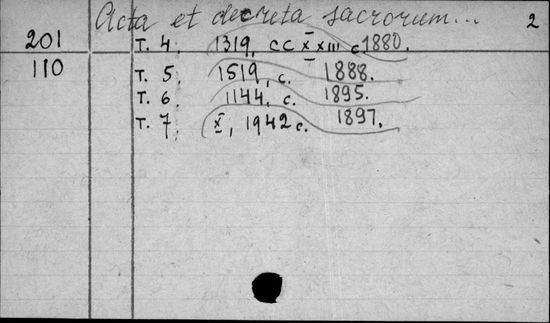 Acta et decreta sacrorum... 2
201 T. 4. 1319, CCXXXIII c. 1880.
110 T. 5. 1519, c. 1888.
T. 6. 1144, c. 1895.
T. 7. X, 1942 c. 1897.